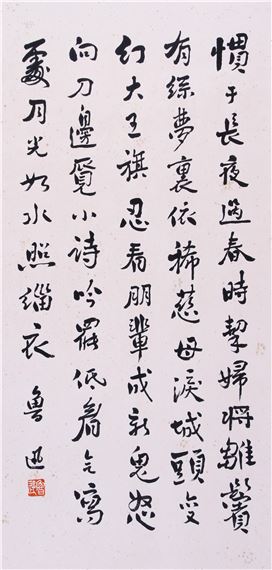 慣于長夜過春時挈婦將雛鬢
有絲夢裏依稀慈母淚城頭变
幻大王旗忍看朋輩成新鬼怒
向刀邊覓小詩吟罷低眉无寫
處月光如水照緇衣 魯迅